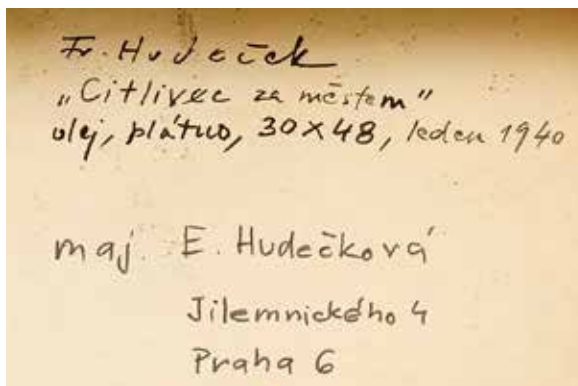 Fr. Hudeček
„Citlivec za městem"
olej, plátno, 30×48, leden 1940
maj. E. Hudečková
Jilemnického 4
Praha 6